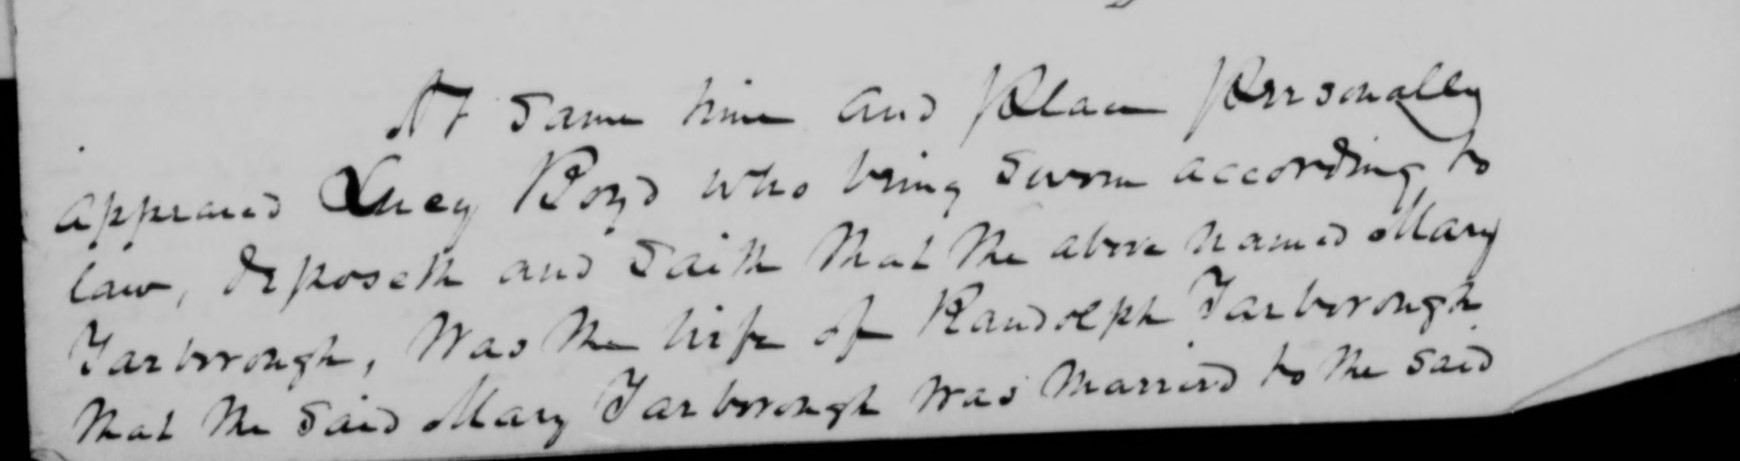 At same time and place personally
appeared Lucy Boyd who being sworn according to
law, deposeth and saith that the above named Mary
Yarborough, was the wife of Randolph Yarborough
that the said Mary Yarborough was married to the said